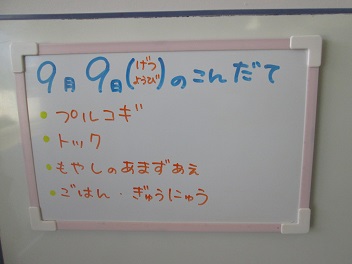 9月9日(げつようび)のこんだて
プルコギ
トック
もやしのあまずあえ
ごはん・ぎゅうにゅう